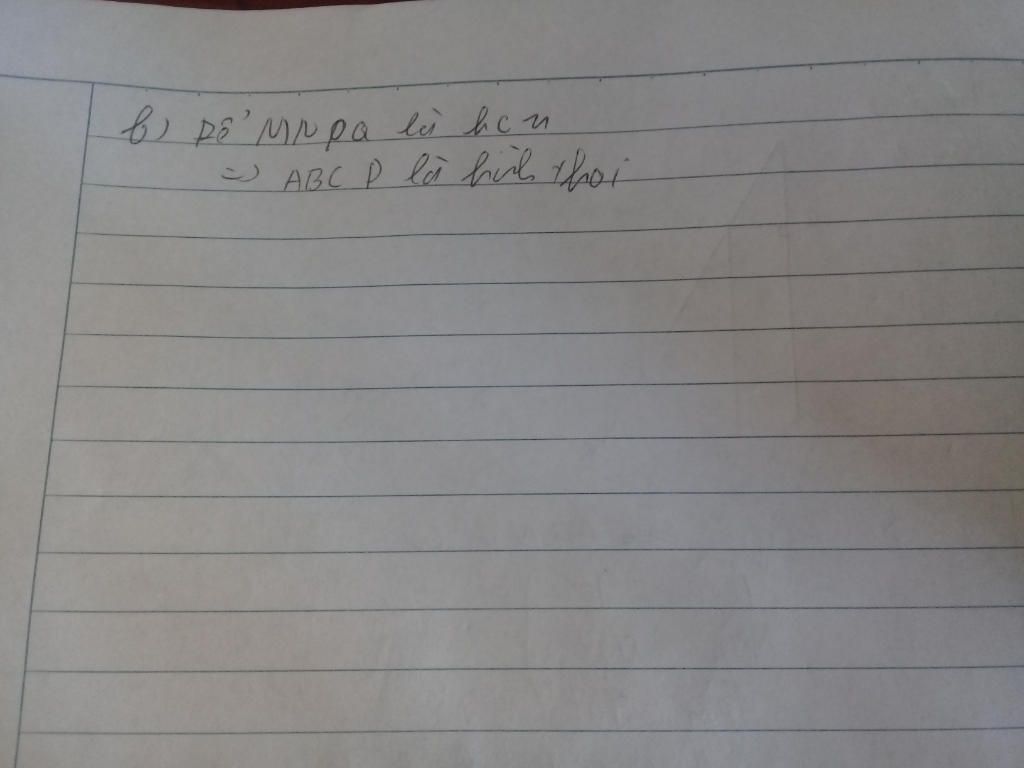 b) Để MNPQ là hcn
=> ABCD là hình thoi